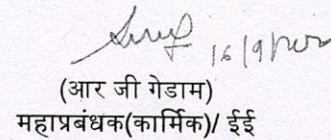 16/9/
(आर जी गेडाम)
महाप्रबंधक(कार्मिक)/ ईई